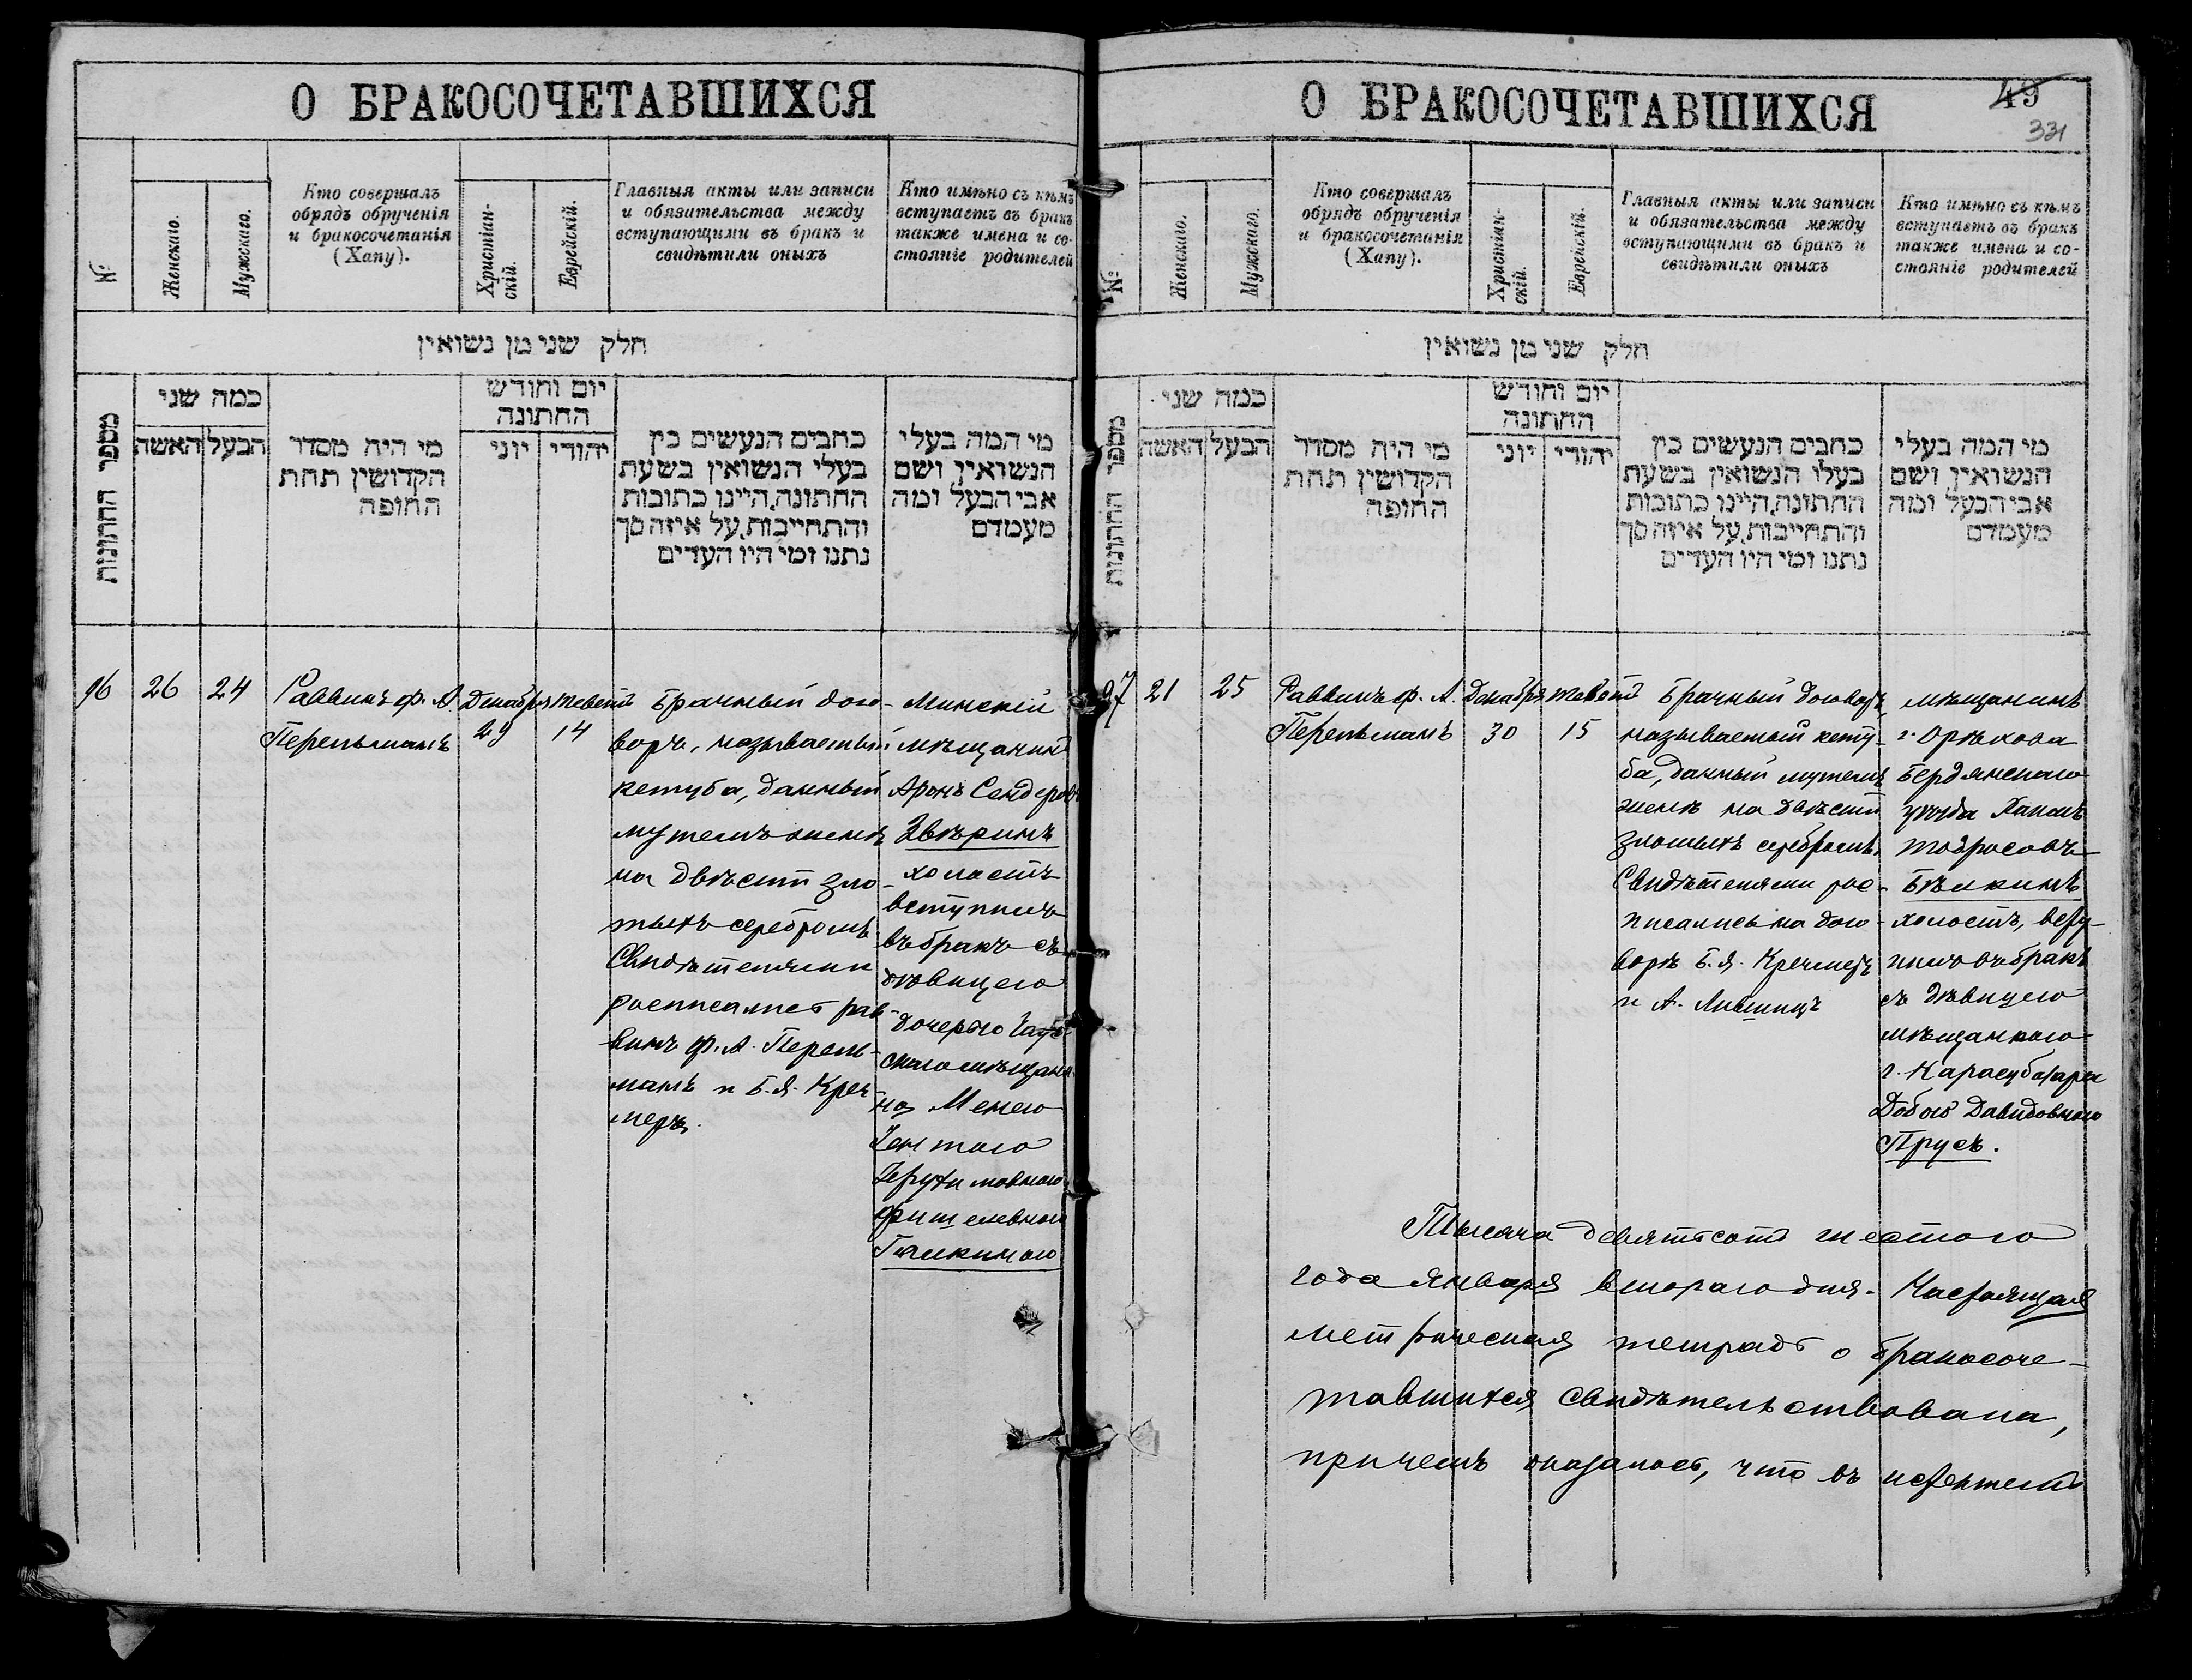 О БРАКОСОЧЕТАВШИХСЯ
№
Женскаго.
Мужскаго.
Кто совершалъ
обрядъ обрученія
и бракосочетанія
(Хапу).
Христіан-
скій.
Еврейскій.
Главныя акты или записи
и обязательства между
вступающими въ бракъ и
свидѣтили оныхъ
Кто имѣно съ кѣмъ
вступаетъ въ бракъ
также имена и со-
стояніе родителей
חלק שני מן נשואין
מספר החתונות
כמה שני
האשה
הבעל
מי היה מסדר
הקדושין תחת
החופה
יום וחודש
החתונה
יוני
יהודי
כתבים הנעשים בין
בעלי הנשואין בשעת
החתונה,היינו כתובות
והתחייבות,על איזה סך
נתנו ומי היו העדים
מי המה בעלי
הנשואין ושם
אבי הבעל ומה
מעמדם
96
26
24
Раввинъ Ф. А.
Перельманъ
Декабря
29
Теветъ
14
Брачный дого-
воръ, называемый
кетуба, данный
мужемъ женѣ
на двѣсти зло-
тыхъ серебромъ
Свидѣтелями
росписались рав-
винъ Ф. А. Перель-
манъ и Б. Я. Креч-
меръ.
Минскій
мѣщанинъ
Аронъ Сендеровъ
Звѣринъ
холостъ
вступилъ
въ бракъ съ
дѣвицею
дочерью
мѣщани-
на Менею
Фишелевною
Галкиною
О БРАКОСОЧЕТАВШИХСЯ
49
331
№
Женскаго.
Мужскаго.
Кто совершалъ
обрядъ обрученія
и бракосочетанія
(Хапу).
Христіан-
скій.
Еврейскій.
Главныя акты или записи
и обязательства между
вступающими въ бракъ и
свидѣтили оныхъ
Кто имѣно съ кѣмъ
вступаетъ въ бракъ
также имена и со-
стояніе родителей
חלק שני מן נשואין
מספר החתונות
כמה שני
האשה
הבעל
מי היה מסדר
הקדושין תחת
החופה
יום וחודש
החתונה
יוני
יהודי
כתבים הנעשים בין
בעלו הנשואין בשעת
החתונה,היינו כתובות
והתחייבות,על איזה סך
נתנו ומי היו העדים
מי המה בעלי
הנשואין ושם
אבי הבעל ומה
מעמדם
97
21
25
Раввинъ Ф. А.
Перельманъ
Декабря
30
Теветъ
15
Брачный договоръ,
называемый кету-
ба, данный мужемъ
женѣ на двѣсти
злотыхъ серебромъ.
Свидѣтелями рос-
писались на дого-
ворѣ Б. Я. Кречмеръ
и А. Лившицъ
мѣщанинъ
г. Орѣхова
Бердянскаго
уѣзда Хаимъ
Тодросовъ
Бѣлкинъ
холостъ, всту-
пилъ въ бракъ
съ дѣвицею
мѣщанкою
г. Карасубазара
Добою Давидовною
Прусъ.
Тысяча девятьсотъ шестого
года января второго дня. Настоящая
метрическая тетрадь о бракосоче-
тавшихся свидѣтельствована,
причемъ оказалось, что въ истекшемъ